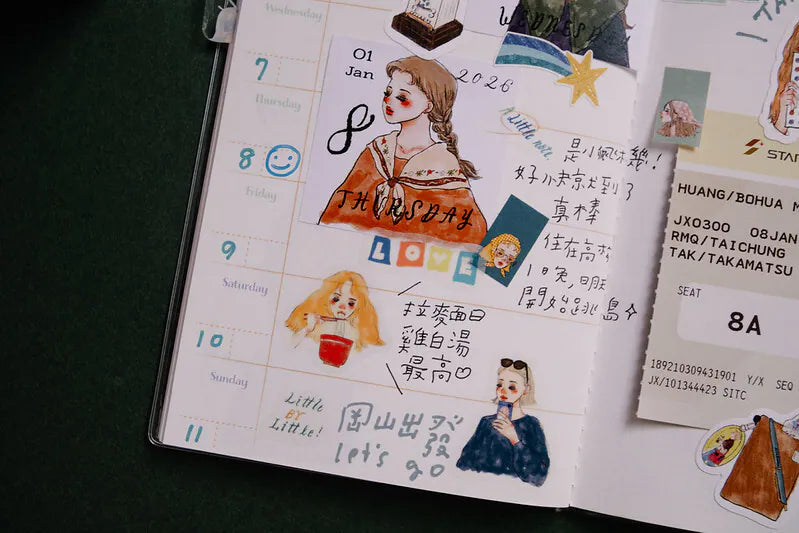 Wednesday
WEDNESD
7
01
Jan
2026
8
Thursday
THURSDAY
A Little note
是小瓢蟲幾!
好小隻京尤到了
真棒
住在高松
1日兔,明天
開始跳島
8
Friday
LOVE
9
Saturday
拉麵面曰
雞白湯
最高♡
10
Sunday
Little
BY
Little!
岡山出發
let's go
11
STAR
HUANG/BOHUA M
JX0300 08JAN
RMQ/TAICHUNG
TAK/TAKAMATSU
SEAT
8A
189210309431901 Y/X SEQ
JX/101344423 SITC